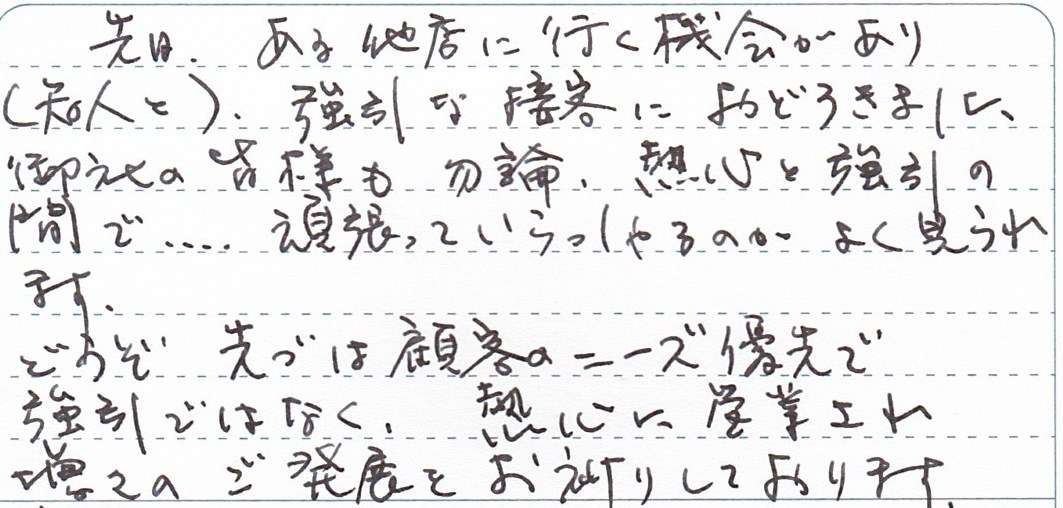 先日、ある他店に行く機会があり
(知人と)、強引な接客におどろきました、
御社の皆様も勿論、熱心と強引の
間で‥‥頑張っていらっしゃるのがよく見うれ
ます、
どうぞ先づは顧客のニーズ優先で
強引ではなく、熱心に営業され
増々のご発展をお祈りしております、